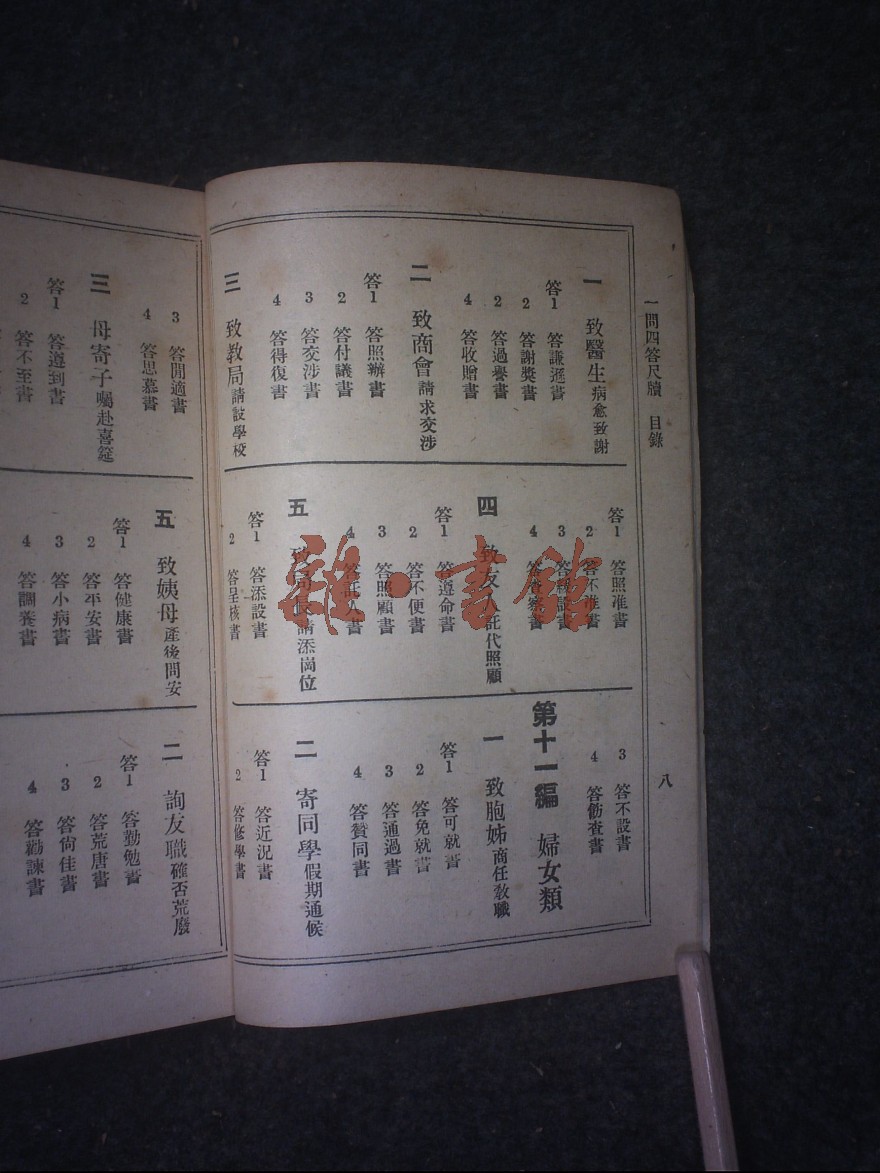 一問四答尺牘 目錄
八
一 致醫生病愈致謝
答1 答謙遜書
2 答謝獎書
2 答過譽書
4 答收贈書
二 致商會請求交涉
答1 答照辦書
2 答付議書
3 答交涉書
4 答得復書
三 致教局請設學校
答1 答照准書
2 答不准書
4 答查察書
四 致友人託代照顧
答1 答遵命書
2 答不便書
3 答照顧書
4 答託人書
五 致局長請添崗位
答1 答添設書
2 答呈核書
3 答不設書
4 答飭查書
第十一編 婦女類
一 致胞姊商任教職
答1 答可就書
2 答免就書
3 答通過書
4 答贊同書
二 寄同學假期通候
答1 答近況書
2 答修學書
3 答閒適書
4 答思慕書
三 母寄子囑赴喜筵
答1 答遵到書
2 答不至書
五 致姨母產後問安
答1 答健康書
2 答平安書
3 答小病書
4 答調養書
二 詢友職確否荒廢
答1 答勤勉書
2 答荒唐書
3 答尙佳書
4 答勸諫書
雜·書館